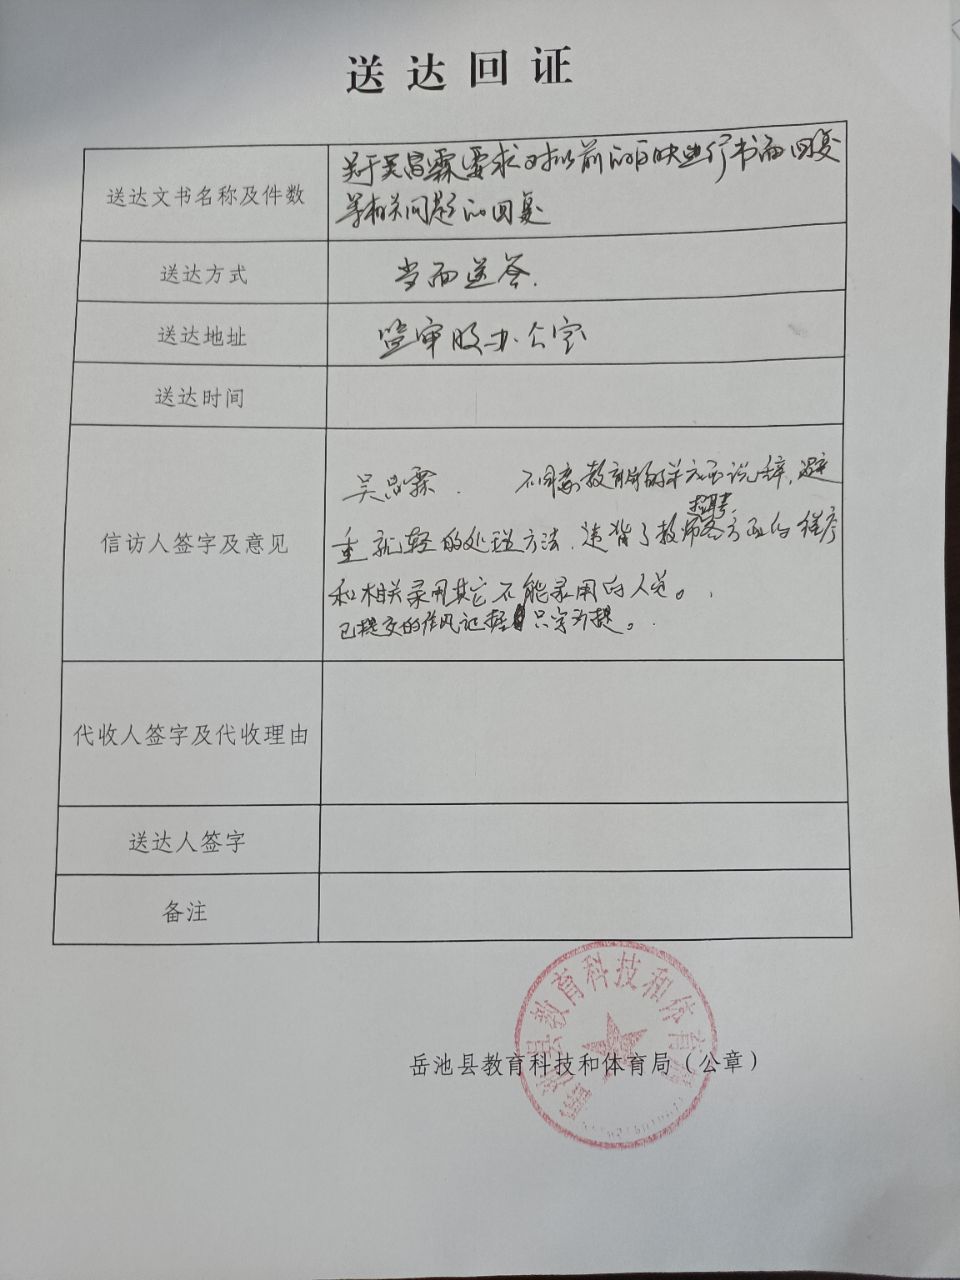 送达回证
送达文书名称及件数
关于吴昌霖要求对以前的反映进行书面回复
等相关问题的回复
送达方式
当面送答.
送达地址
监审股办公室
送达时间
信访人签字及意见
吴昌霖. 不同意教育局的单方面说辞,避
重就轻的处理方法,违背了教师招聘各方面的程序
和相关录用其它不能录用的人员。
已提交的作风证据只字不提。
代收人签字及代收理由
送达人签字
备注
岳池县教育科技和体育局(公章)
岳池县教育科技和体育局